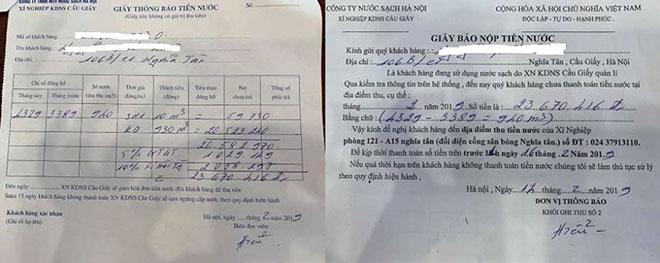 CÔNG TY TNHH MTV NƯỚC SẠCH HÀ NỘI
XÍ NGHIỆP KDNS CẦU GIẤY
GIẤY THÔNG BÁO TIỀN NƯỚC
(Giấy này không có giá trị thu tiền)
Mã số khách hàng:
Tên khách hàng:
Địa chỉ: 106B/ Nghĩa Tân
Chỉ số đồng hồ
Tháng này
Tháng trước
Số nước tiêu thụ (m3)
Đơn giá đồng/m3
Tiền thuế đồng hồ
Nợ chưa trả
Tổng số phải trả
4329 3389 940 SH1 10 m3 = 59 730
KD 930 m3 = 20 523 240
20.582 970
5% GTGT 1 029 149
10% 2 058 297
23 670 416 đ
XN KDNS Cầu Giấy sẽ giao hóa đơn tiền nước đến khách hàng để thu tiền.
Sau 15 ngày khách hàng không thanh toán XN KDNS Cầu Giấy sẽ tạm ngừng cấp nước theo quy định hiện hành.
Khách hàng xác nhận
(Ghi rõ họ tên)
Hà Nội, ngày tháng 2 năm 2019
Biên đọc viên
Hiền 2
CÔNG TY NƯỚC SẠCH HÀ NỘI
XÍ NGHIỆP KDNS CẦU GIẤY
CỘNG HÒA XÃ HỘI CHỦ NGHĨA VIỆT NAM
ĐỘC LẬP - TỰ DO - HẠNH PHÚC.
GIẤY BÁO NỘP TIỀN NƯỚC
Kính gửi quý khách hàng:
Địa chỉ: 106B/ Nghĩa Tân, Cầu Giấy, Hà Nội
Là khách hàng đang sử dụng nước sạch do XN KDNS Cầu Giấy quản lí
Qua kiểm tra thông tin trên hệ thống, đến nay quý khách hàng chưa thanh toán tiền nước tại
địa điểm thu, cụ thể:
tháng 2 năm 2019 Số tiền là: 23 670 416 đ
Bằng chữ: (4329 - 3389 = 940 m3)
Vậy kính đề nghị khách hàng đến địa điểm thu tiền nước của Xí Nghiệp
phòng 121 - A15 nghĩa tân (đối diện cổng sân bóng Nghĩa Tân). số ĐT : 024 37913110.
Để kịp thời thanh toán số tiền trên trước ngày 16 tháng 2 Năm 2019.
Nếu quá thời hạn trên khách hàng không thanh toán tiền nước chúng tôi sẽ làm thủ tục sử lý
theo quy định hiện hành.
Hà Nội, ngày 14 tháng 2 năm 2019
ĐƠN VỊ THÔNG BÁO
KHỐI GHI THU SỐ 2
Hiền 2